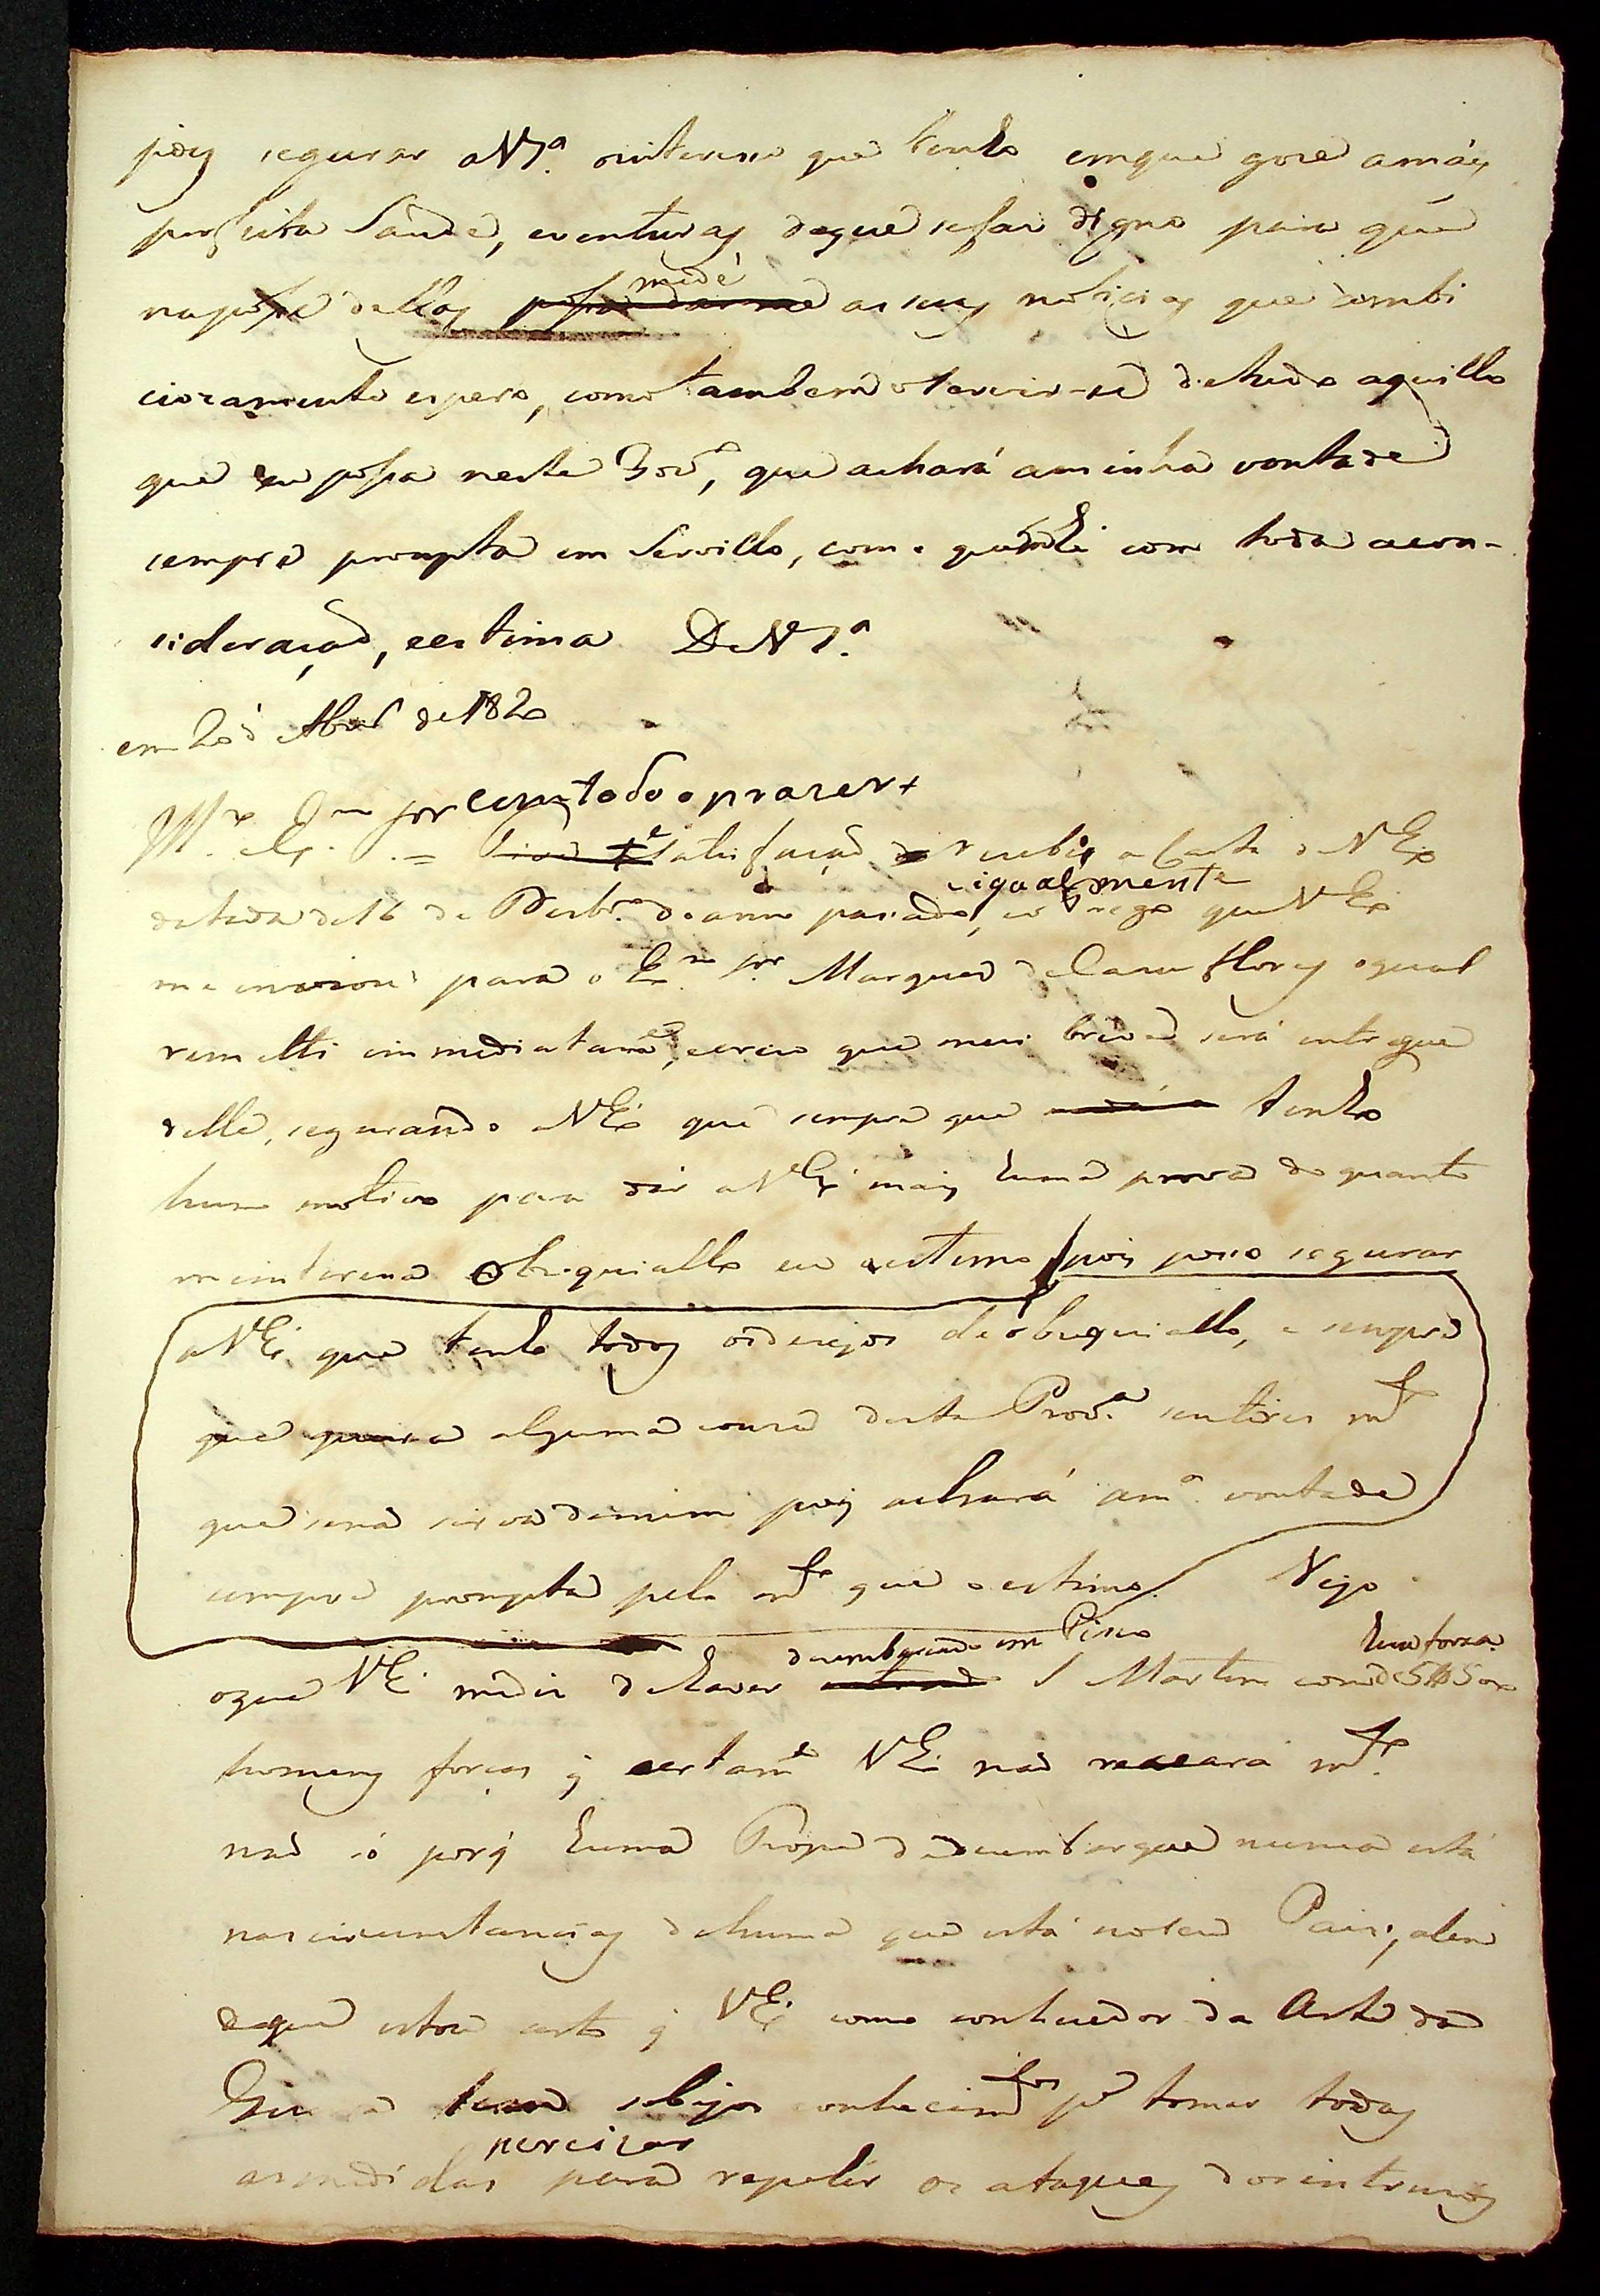 pois segurar a V S.ª o interesse que tenho em que goze a mais
perfeita Saude, e venturas de que se faz digno para que
na posse dellas me dê as suas noticias que ambi
ciozamente espero, como tambem o servir-se de tudo aquillo
que eu possa neste Gov.º, que achará a minha vontade
sempre prompta em Servillo, como quem hé com toda a con-
sideração, e estima De V S.ª
em 20 d' Abril de 1820
Ill.mo Ex.mo Snr = com todo o prazer +
e satisfação recebi a Carta de V Ex.ª
datada de 16 de Dezbr.º do anno passado, e igualmente
o prego que V Ex.ª
me inviou para o Ex.mo Snr. Marquez de Casa Flores o qual
remetti immediatam.e, e creio que mui breve será entregue
delle, segurando a V Ex.ª que sempre que tenho
hum motivo para dár a V Ex.ª mais huma prova do quanto
me interessa obsequiallo eu estimo, pois posso segurar
a V Ex.ª que tenho todos os dezejos de obsequiallo, e sempre
que queira alguma couza desta Prov.ª sentirei m.to
que se não sirva de mim pois achará a m.ª vontade
sempre prompta pelo m.to que o estimo. Vejo
o que V Ex.ª me diz de haver desembarcado em Pisco
S Martin com huma forza de 5 a
homens forças q certam.e V Ex.ª não receará m.to
não só porq huma Tropa de desembarque nunca está
nas circunstancias de huma que está no seu Paiz, alem
de que estou certo q V Ex.ª como conhecedor da Arte da
Guerra tem sobejos conhecim.tos p.ª tomar todas
as medidas percizas para repelir os ataques dos intruzos